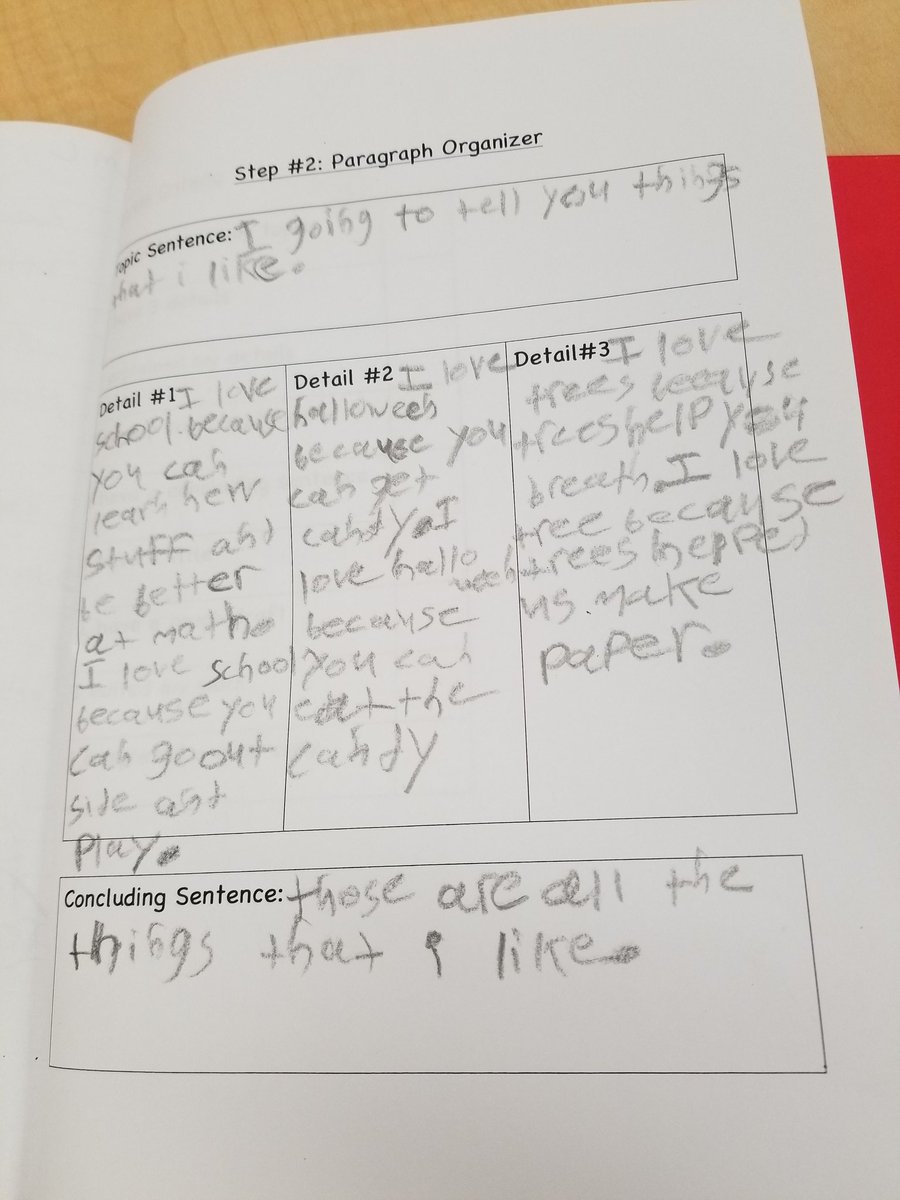 Step #2: Paragraph Organizer
opic Sentence: I going to tell you things
that i like.
Detail #1 I love
school. because
you can
learn new
stuff and
be better
at math.
I love school
because you
can go out
side and
play.
Detail #2 I love
halloween
because you
can get
candy. I
love hallo
ween
because
you can
eat the
candy
Detail#3 I love
trees because
trees help you
breath. I love
tree because
trees hepped
us make
paper.
Concluding Sentence: those are all the
things that i like.